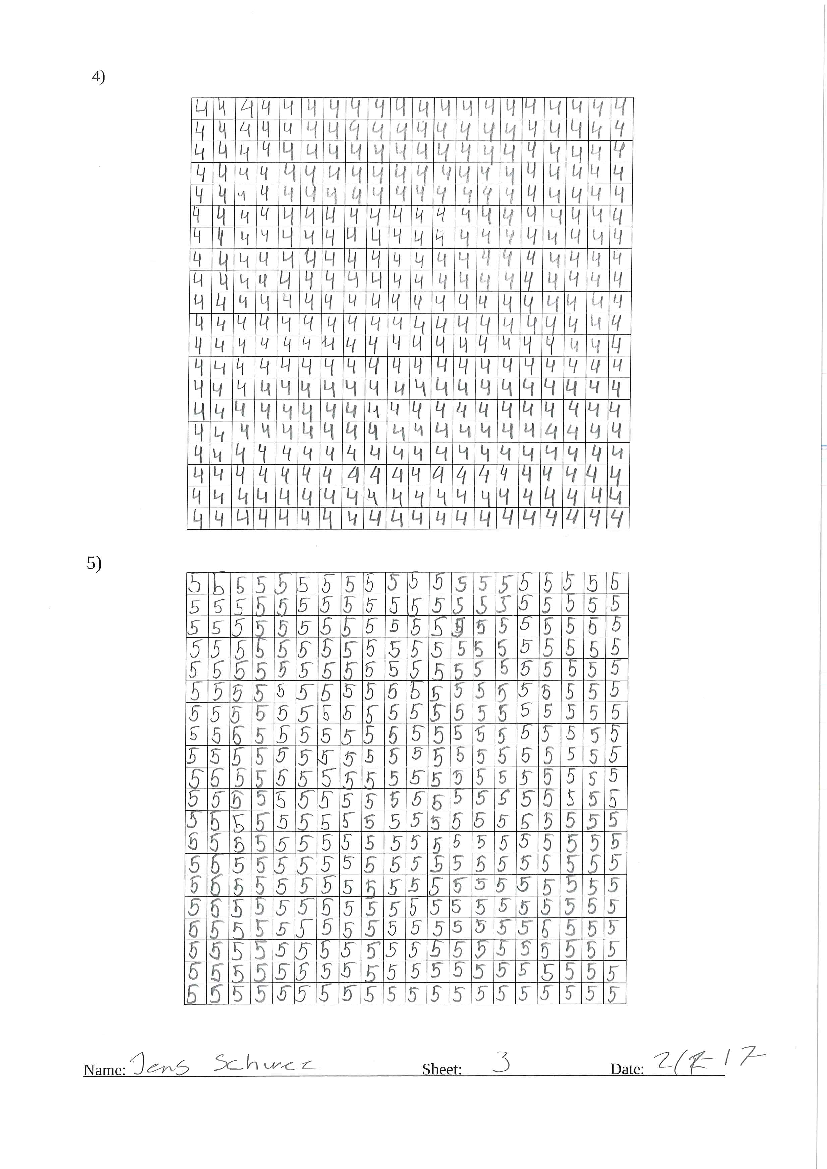 4)
4 4 4 4 4 4 4 4 4 4 4 4 4 4 4 4 4 4 4 4
4 4 4 4 4 4 4 4 4 4 4 4 4 4 4 4 4 4 4 4
4 4 4 4 4 4 4 4 4 4 4 4 4 4 4 4 4 4 4 4
4 4 4 4 4 4 4 4 4 4 4 4 4 4 4 4 4 4 4 4
4 4 4 4 4 4 4 4 4 4 4 4 4 4 4 4 4 4 4 4
4 4 4 4 4 4 4 4 4 4 4 4 4 4 4 4 4 4 4 4
4 4 4 4 4 4 4 4 4 4 4 4 4 4 4 4 4 4 4 4
4 4 4 4 4 4 4 4 4 4 4 4 4 4 4 4 4 4 4 4
4 4 4 4 4 4 4 4 4 4 4 4 4 4 4 4 4 4 4 4
4 4 4 4 4 4 4 4 4 4 4 4 4 4 4 4 4 4 4 4
4 4 4 4 4 4 4 4 4 4 4 4 4 4 4 4 4 4 4 4
4 4 4 4 4 4 4 4 4 4 4 4 4 4 4 4 4 4 4 4
4 4 4 4 4 4 4 4 4 4 4 4 4 4 4 4 4 4 4 4
4 4 4 4 4 4 4 4 4 4 4 4 4 4 4 4 4 4 4 4
4 4 4 4 4 4 4 4 4 4 4 4 4 4 4 4 4 4 4 4
4 4 4 4 4 4 4 4 4 4 4 4 4 4 4 4 4 4 4 4
4 4 4 4 4 4 4 4 4 4 4 4 4 4 4 4 4 4 4 4
4 4 4 4 4 4 4 4 4 4 4 4 4 4 4 4 4 4 4 4
4 4 4 4 4 4 4 4 4 4 4 4 4 4 4 4 4 4 4 4
4 4 4 4 4 4 4 4 4 4 4 4 4 4 4 4 4 4 4 4
5)
5 5 5 5 5 5 5 5 5 5 5 5 5 5 5 5 5 5 5 5
5 5 5 5 5 5 5 5 5 5 5 5 5 5 5 5 5 5 5 5
5 5 5 5 5 5 5 5 5 5 5 5 5 5 5 5 5 5 5 5
5 5 5 5 5 5 5 5 5 5 5 5 5 5 5 5 5 5 5 5
5 5 5 5 5 5 5 5 5 5 5 5 5 5 5 5 5 5 5 5
5 5 5 5 5 5 5 5 5 5 5 5 5 5 5 5 5 5 5 5
5 5 5 5 5 5 5 5 5 5 5 5 5 5 5 5 5 5 5 5
5 5 5 5 5 5 5 5 5 5 5 5 5 5 5 5 5 5 5 5
5 5 5 5 5 5 5 5 5 5 5 5 5 5 5 5 5 5 5 5
5 5 5 5 5 5 5 5 5 5 5 5 5 5 5 5 5 5 5 5
5 5 5 5 5 5 5 5 5 5 5 5 5 5 5 5 5 5 5 5
5 5 5 5 5 5 5 5 5 5 5 5 5 5 5 5 5 5 5 5
5 5 5 5 5 5 5 5 5 5 5 5 5 5 5 5 5 5 5 5
5 5 5 5 5 5 5 5 5 5 5 5 5 5 5 5 5 5 5 5
5 5 5 5 5 5 5 5 5 5 5 5 5 5 5 5 5 5 5 5
5 5 5 5 5 5 5 5 5 5 5 5 5 5 5 5 5 5 5 5
5 5 5 5 5 5 5 5 5 5 5 5 5 5 5 5 5 5 5 5
5 5 5 5 5 5 5 5 5 5 5 5 5 5 5 5 5 5 5 5
5 5 5 5 5 5 5 5 5 5 5 5 5 5 5 5 5 5 5 5
5 5 5 5 5 5 5 5 5 5 5 5 5 5 5 5 5 5 5 5
Name: Jens Sheet: 3 Date: